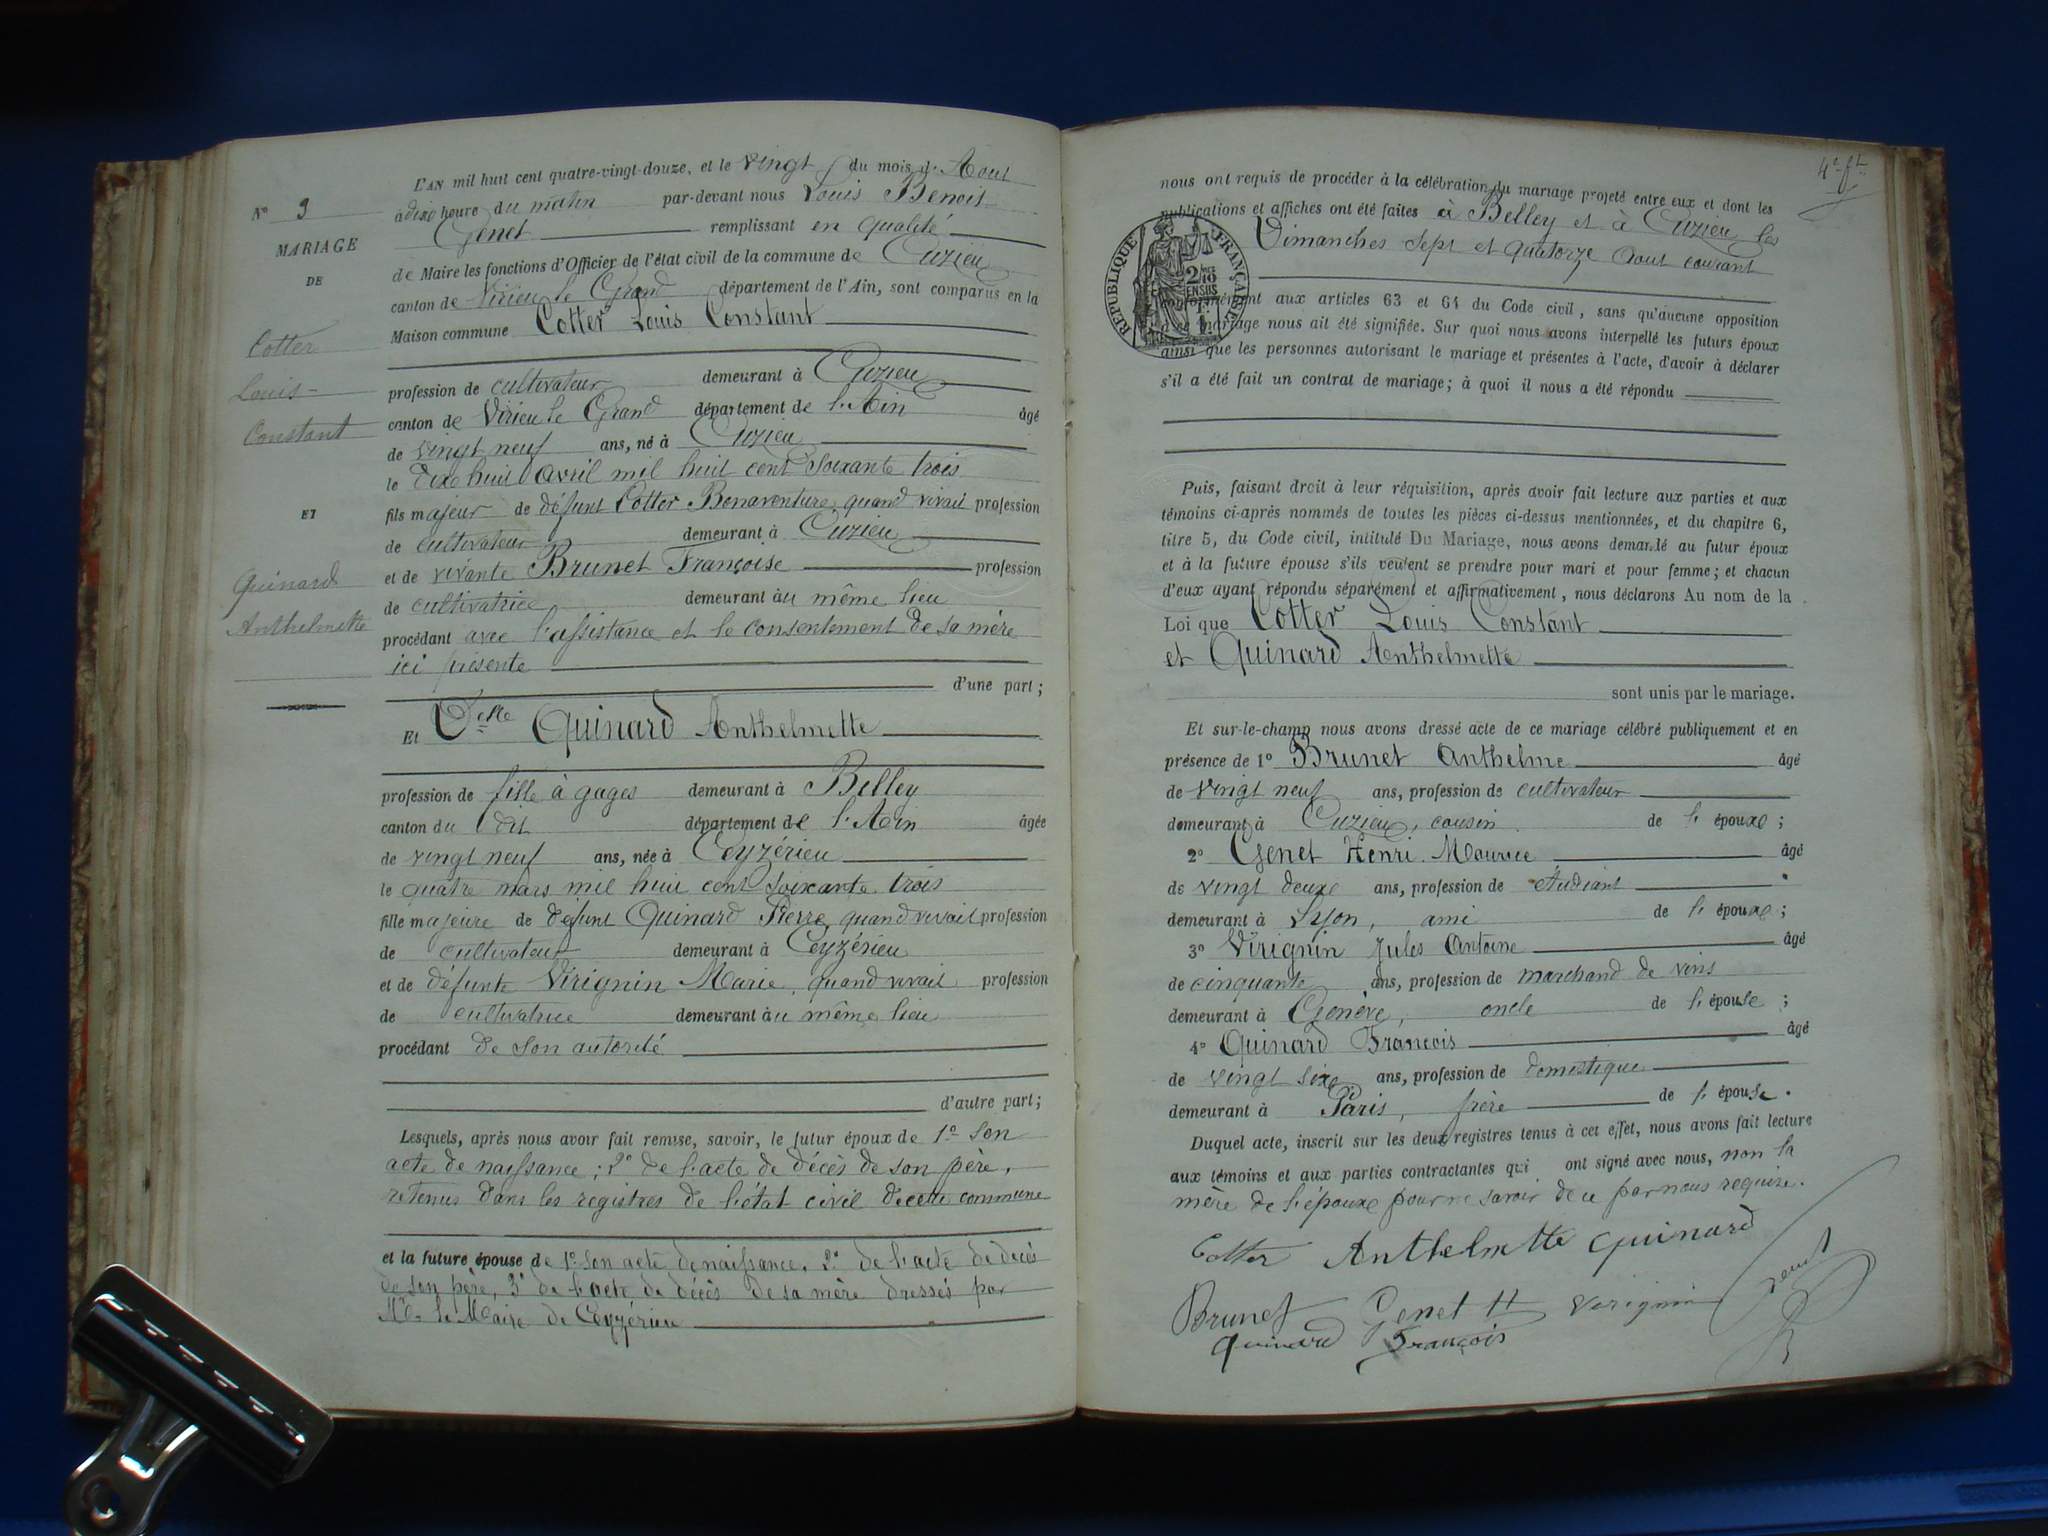 L'AN mil huit cent quatre-vingt-douze, et le vingt du mois d' Aout
à dixe heure du matin par-devant nous Louis Benoit
Genet remplissant en qualité
de Maire les fonctions d'Officier de l'état civil de la commune de Cuzieu
canton de Virieu le Grand département de l'Ain, sont comparus en la
Maison commune Cotter Louis Constant
profession de cultivateur demeurant à Cuzieu
canton de Virieu le Grand département de l'Ain âgé
de vingt neuf ans, né à Cuzieu
le dixe huit avril mil huit cent soixante trois
fils majeur de défunt Cotter Bonaventure, quand vivait profession
de cultivateur demeurant à Cuzieu
et de vivante Brunet Françoise profession
de cultivatrice demeurant au même lieu
procédant avec l'assistance et le consentement de sa mère
ici présente
d'une part;
Et Delle Quinard Anthelmette
profession de fille à gages demeurant à Belley
canton du dit département de l'Ain âgée
de vingt neuf ans, née à Ceyzérieu
le quatre mars mil huit cent soixante trois
fille majeure de défunt Quinard Pierre, quand vivait profession
de cultivateur demeurant à Ceyzérieu
et de défunte Virignin Marie, quand vivait profession
de cultivatrice demeurant au même lieu
procédant de son autorité
d'autre part;
Lesquels, après nous avoir fait remise, savoir, le futur époux de 1° son
acte de naissance; 2° de l'acte de décès de son père,
retenus dans les registres de l'état civil de cette commune
et la future épouse de 1° son acte de naissance, 2° de l'acte de décès
de son père, 3° de l'acte de décès de sa mère dressés par
Mr le Maire de Ceyzérieu
N° 9
MARIAGE
DE
Cotter
Louis-
Constant
ET
Quinard
Anthelmette
4e ft
nous ont requis de procéder à la célébration du mariage projeté entre eux et dont les
publications et affiches ont été faites à Belley et à Cuzieu les
Dimanches sept et quatorze Aout courant
RÉPUBLIQUE FRANÇAISE
2/10 EN SUS
1 F.
conformément aux articles 63 et 64 du Code civil, sans qu'aucune opposition
à ce mariage nous ait été signifiée. Sur quoi nous avons interpellé les futurs époux
ainsi que les personnes autorisant le mariage et présentes à l'acte, d'avoir à déclarer
s'il a été fait un contrat de mariage; à quoi il nous a été répondu
Puis, faisant droit à leur réquisition, après avoir fait lecture aux parties et aux
témoins ci-après nommés de toutes les pièces ci-dessus mentionnées, et du chapitre 6,
titre 5, du Code civil, intitulé Du Mariage, nous avons demandé au futur époux
et à la future épouse s'ils veulent se prendre pour mari et pour femme; et chacun
d'eux ayant répondu séparément et affirmativement, nous déclarons Au nom de la
Loi que Cotter Louis Constant
et Quinard Anthelmette
sont unis par le mariage.
Et sur-le-champ nous avons dressé acte de ce mariage célébré publiquement et en
présence de 1° Brunet Anthelme âgé
de vingt neuf ans, profession de cultivateur
demeurant à Cuzieu, cousin de l'épouxe;
2° Genet Henri Maurice âgé
de vingt deuxe ans, profession de étudiant
demeurant à Lyon, ami de l'épouxe;
3° Virignin Jules Antoine âgé
de cinquante ans, profession de marchand de vins
demeurant à Genève, oncle de l'épouse;
4° Quinard François âgé
de vingt sixe ans, profession de domestique
demeurant à Paris, frère de l'épouse.
Duquel acte, inscrit sur les deux registres tenus à cet effet, nous avons fait lecture
aux témoins et aux parties contractantes qui ont signé avec nous, non la
mère de l'épouxe pour ne savoir de ce par nous requise.
Cotter Anthelmette Quinard
Brunet Genet H Virignin Genet
Quinard François